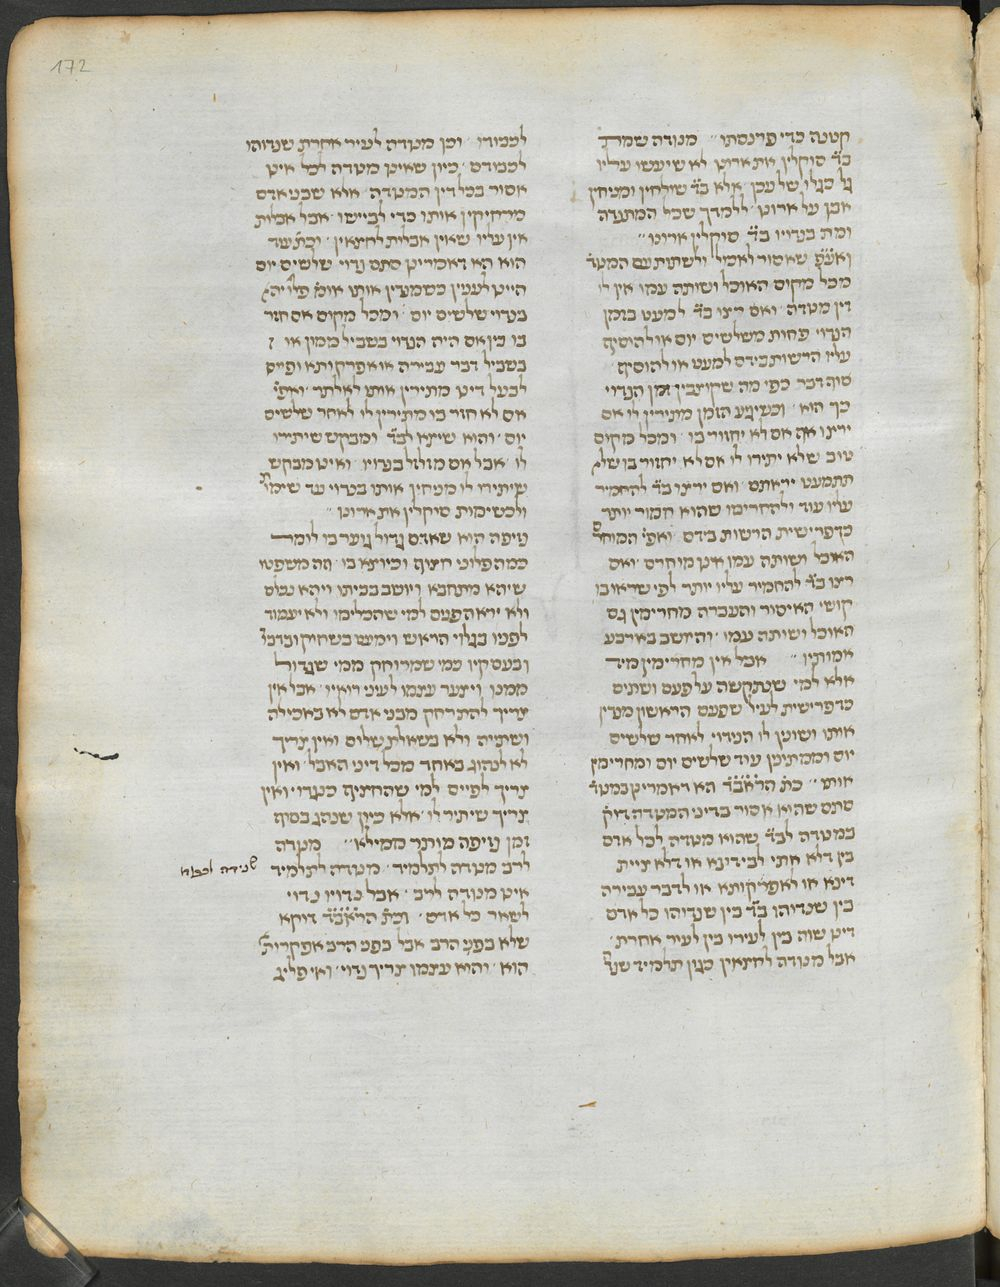 172
קטנה כדי פרנסתו״ מנודה שמת
ב״ד סוקלין את ארונו לא שיעשו עליו
גל כגלו של עכן אלא ב״ד שולחין ומניחין
אבן על ארונו ללמדך שכל המתנדה
ומת בנדויו ב״ד סוקלין ארונו״
ואע״פ שאסור לאכול ולשתות עם המנוד׳
מכל מקום האוכל ושותה עמו אין לו
דין מנודה ואם רצו ב״ד למעט בזמן
הנדוי פחות משלשים יום או להוסיף
עליו הרשות בידם למעט או להוסיף
סוף דבר כפי מה שקוצבין זמן הנדוי
כך הוא וכשיגיע הזמן מתירין לו אם
ירצו אף אם לא יחזור בו ומכל מקום
טוב שלא יתירו לו אם לא יחזור בו שלא
תתמעט יראתם ואם ירצו ב״ד להחמיר
עליו עוד ולהחרימו שהוא חמור יותר
כדפרישית הרשות בידם ואפי׳ המוחרם
האוכל ושותה עמו אינו מוחרם ואם
רצו ב״ד להחמיר עליו יותר לפי שראו בו
קושי האיסור והעברה מחרימין גם
האוכל ושותה עמו והיושב בארבע
אמותיו״ אבל אין מחרימין מיד
אלא למי שנתקשה על פעם ושתים
כדפרישית לעיל שפעם הראשון מנדין
אותו ושונין לו הנידוי לאחר שלשים
יום וממתינין עוד שלשים יום ומחרימין
אותו״ כת׳ הראב״ד הא דאמרינן במנוד׳
סתם שהוא אסור בדיני המנודה דוק׳
במנודה לב״ד שהוא מנודה לכל אדם
בין דלא אתי לבי דינא או דלא ציית
דינא או לאפקירותא או לדבר עבירה
בין שנדוהו ב״ד בין שנדוהו כל אדם
דינו שוה בין לעירו בין לעיר אחרת
אבל מנודה לחצאין כגון תלמיד שנד׳
לכבודו וכן מנודה לעיר אחרת שנדוהו
לכבודם כיון שאינו מנודה לכל אינו
אסור בכל דין המנודה אלא שבני אדם
מרחיקין אותו כדי לביישו אבל אבלות
אין עליו שאין אבלות לחצאין וכת׳ עוד
הוא הא דאמרינן סתם נדוי שלשים יום
היינו לענין כשמנדין אותו אומ׳ פלו׳ יהא
בנדוי שלשים יום ומכל מקום אם חזר
בו בין אם היה הנדוי בשביל ממון או
בשביל דבר עבירה או אפקירותא ופייס
לבעל דינו מתירין אותו לאלתר ואפי׳
אם לא חזר בו מתירין לו לאחר שלשים
יום והוא שיצא לב״ד ומבקש שיתירו
לו אבל אם מזלזל בנדויו ואינו מבקש
שיתירו לו מניחין אותו בנדוי עד שימו׳
ולכשימות סוקלין את ארונו״
נזיפה הוא שאדם גדול גוער בו לומר
כמה פלוני חצוף וכיוצא בו זה משפטו
שיהא מתחבא ויושב בביתו ויהא נכלם
ולא יראה פנים למי שהכלימו ולא יעמוד
לפניו בגלוי הראש וימעט בשחוק ובדבו׳
ובעסקיו כמי שמרוחק ממי שגדול
ממנו ויצער עצמו לעיני רואיו אבל אין
צריך להתרחק מבני אדם לא באכילה
ושתיה ולא בשאלת שלום ואין צריך
לא לנהוג באחד מכל דיני האבל ואין
צריך לפייס למי שהחציף כנגדו ואין
צריך שיתיר לו אלא כיון שנהג בסוף
זמן נזיפה מותר ממילא״ מנודה
לרב מנודה לתלמיד מנודה לתלמיד
אינו מנודה לרב אבל נדויו נדוי
לשאר כל אדם וכת׳ הראב״ד דוקא
שלא בפני הרב אבל בפני הרב אפקרות׳
הוא והוא עצמו צריך נדוי ואי פליג
שנידה לכבודו